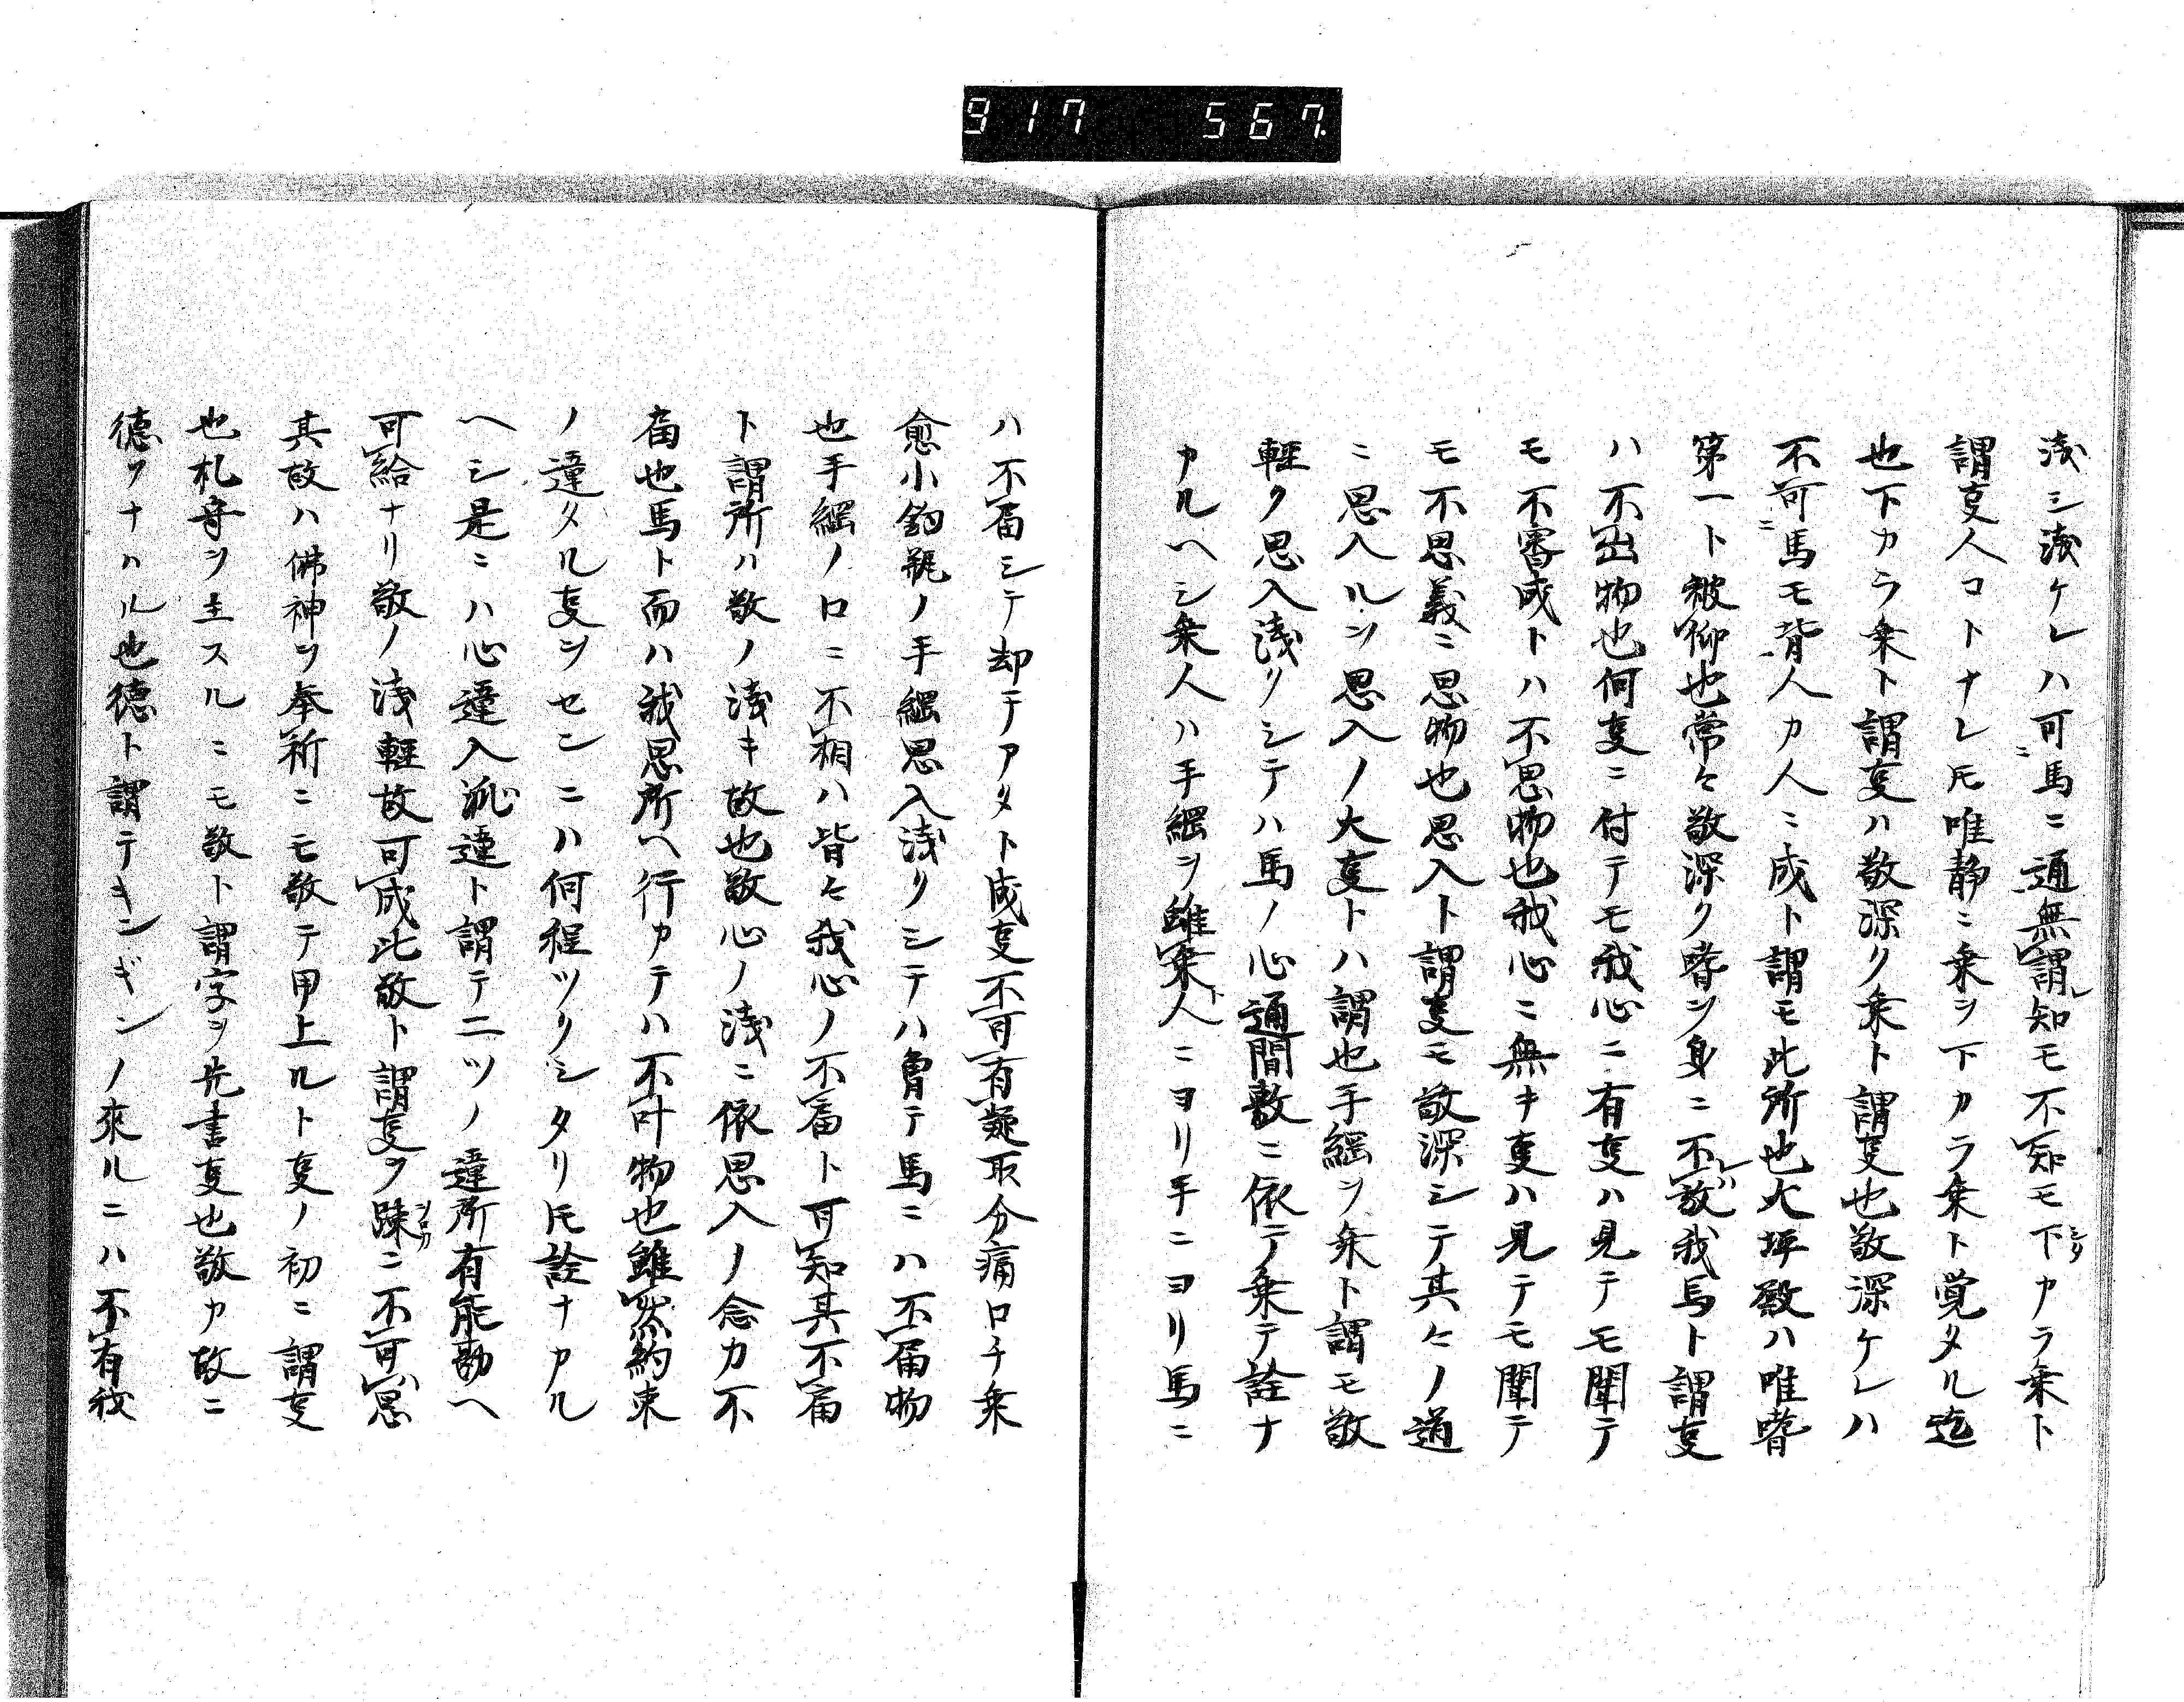 917 567
淺シ淺ケレハ可ニ馬ニ通無謂レ知モ不知モ下シタカラ乗ト
謂㕝人コトナレ𪜈唯静ニ乗ヲ下カラ乗ト覚タル迄
也下カラ乗ト謂㕝ハ敬深ク乗ト謂㕝也敬深ケレハ
不可ニ馬モ背人カ人ニ成ト謂モ此所也大坪殿ハ唯嗜
第一ト被仰也常々敬深ク嗜ヲ身ニ不レハ放我馬ト謂㕝
ハ不出物也何㕝ニ付テモ我心ニ有㕝ハ見テモ聞テ
モ不審成トハ不思物也我心ニ無キ㕝ハ見テモ聞テ
モ不思義ニ思物也思入ト謂㕝モ敬深シテ其々ノ道
ニ思入ルヲ思入ノ大㕝トハ謂也手綱ヲ乗ト謂モ敬
軽ク思入淺クシテハ馬ノ心通間敷ニ依テ乗テ詮ナ
カルヘシ乗人ハ手綱ヲ雖乗ト人ニヨリ手ニヨリ馬ニ
ハ不届シテ却テアタト成㕝不可有疑取分痛口チ乗
愈小釣瓶ノ手綱思入淺クシテハ曽テ馬ニハ不届物
也手綱ノ口ニ不相ハ皆々我心ノ不届ト可知其不届
ト謂所ハ敬ノ淺キ故也敬心ノ淺ニ依思入ノ念カ不
届也馬ト而ハ我思所ヘ行カテハ不叶物也雖然約束
ノ違タル㕝ヲセンニハ何程ツクシタリ𪜈詮ナカル
ヘシ是ニハ心違入派違ト謂テ二ツノ違所有能勘ヘ
可給ナリ敬ノ淺軽故可成此敬ト謂㕝ヲ踈ソロカニ不可思
其故ハ佛神ヲ奉祈ニモ敬テ甲上ルト㕝ノ初ニ謂㕝
也札守ヲ圭スルニモ敬ト謂字ヲ先書㕝也敬カ故ニ
徳ヲナハル也徳ト謂テキンギンノ來ルニハ不有我